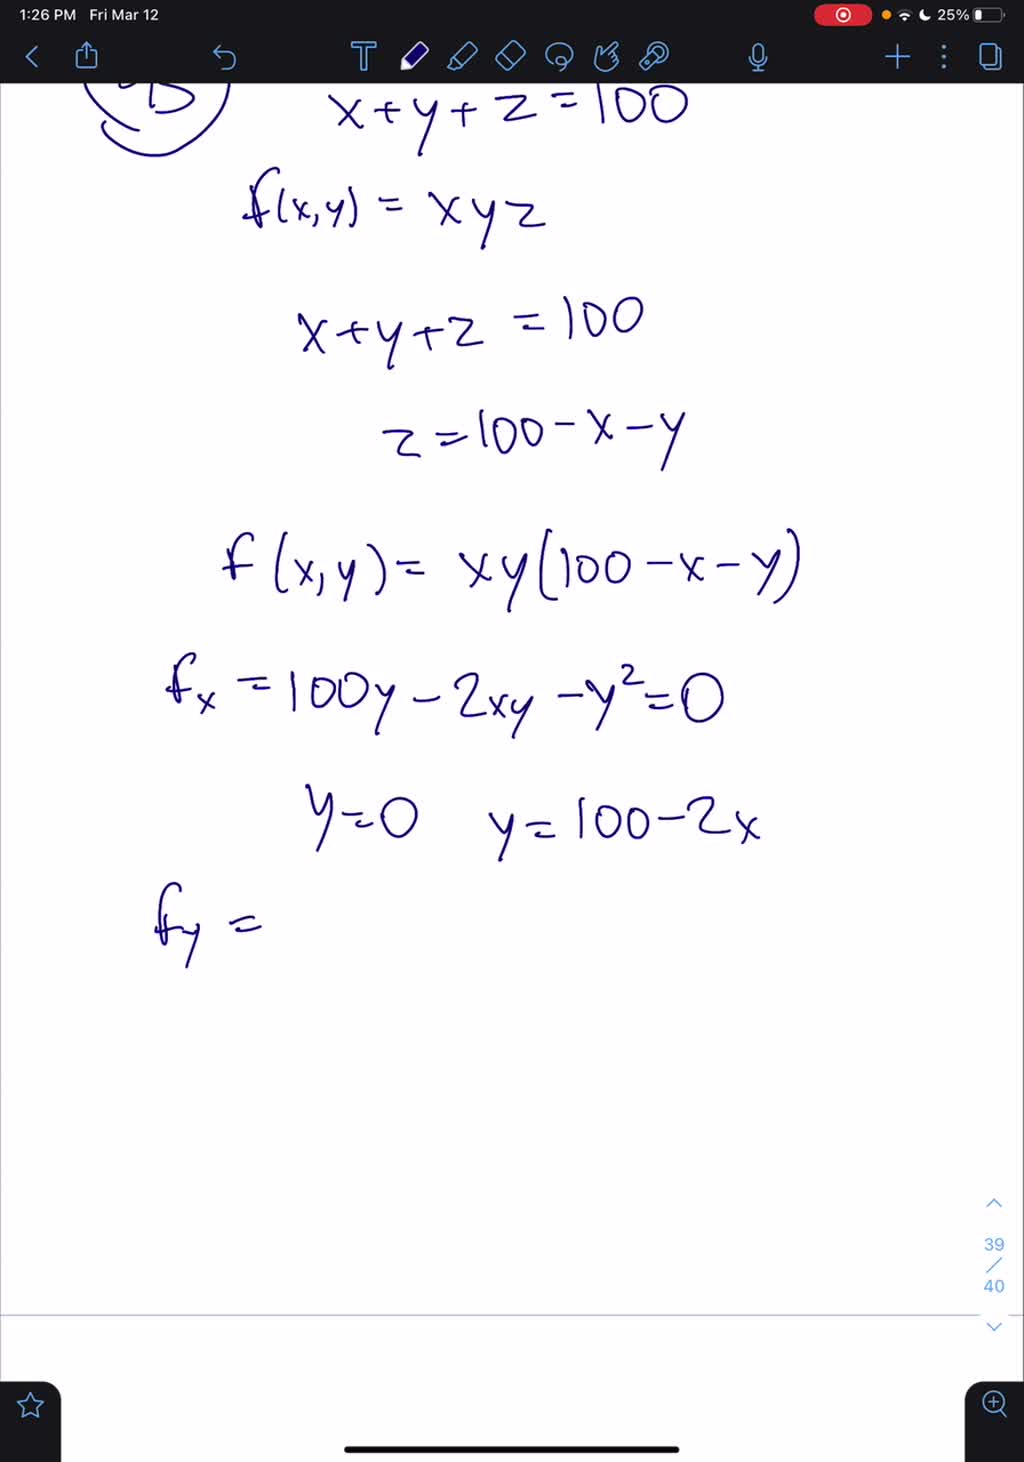 1:26 PM Fri Mar 12 25%
x+y+z=100
f(x,y) = xyz
x+y+z =100
z=100-x-y
f(x,y)= xy(100-x-y)
fx =100y-2xy-y²=0
y=0 y=100-2x
fy =
39
/
40